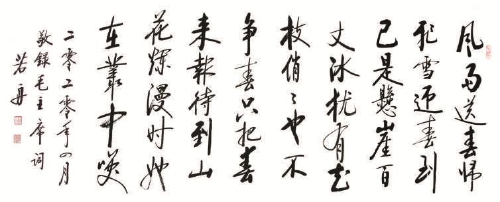 风雨送春归
飛雪迎春到
已是懸崖百
丈冰犹有花
枝俏〻也不
争春只把春
来報待到山
花爛漫时她
在叢中笑
二零二零年四月
敬録毛主席词